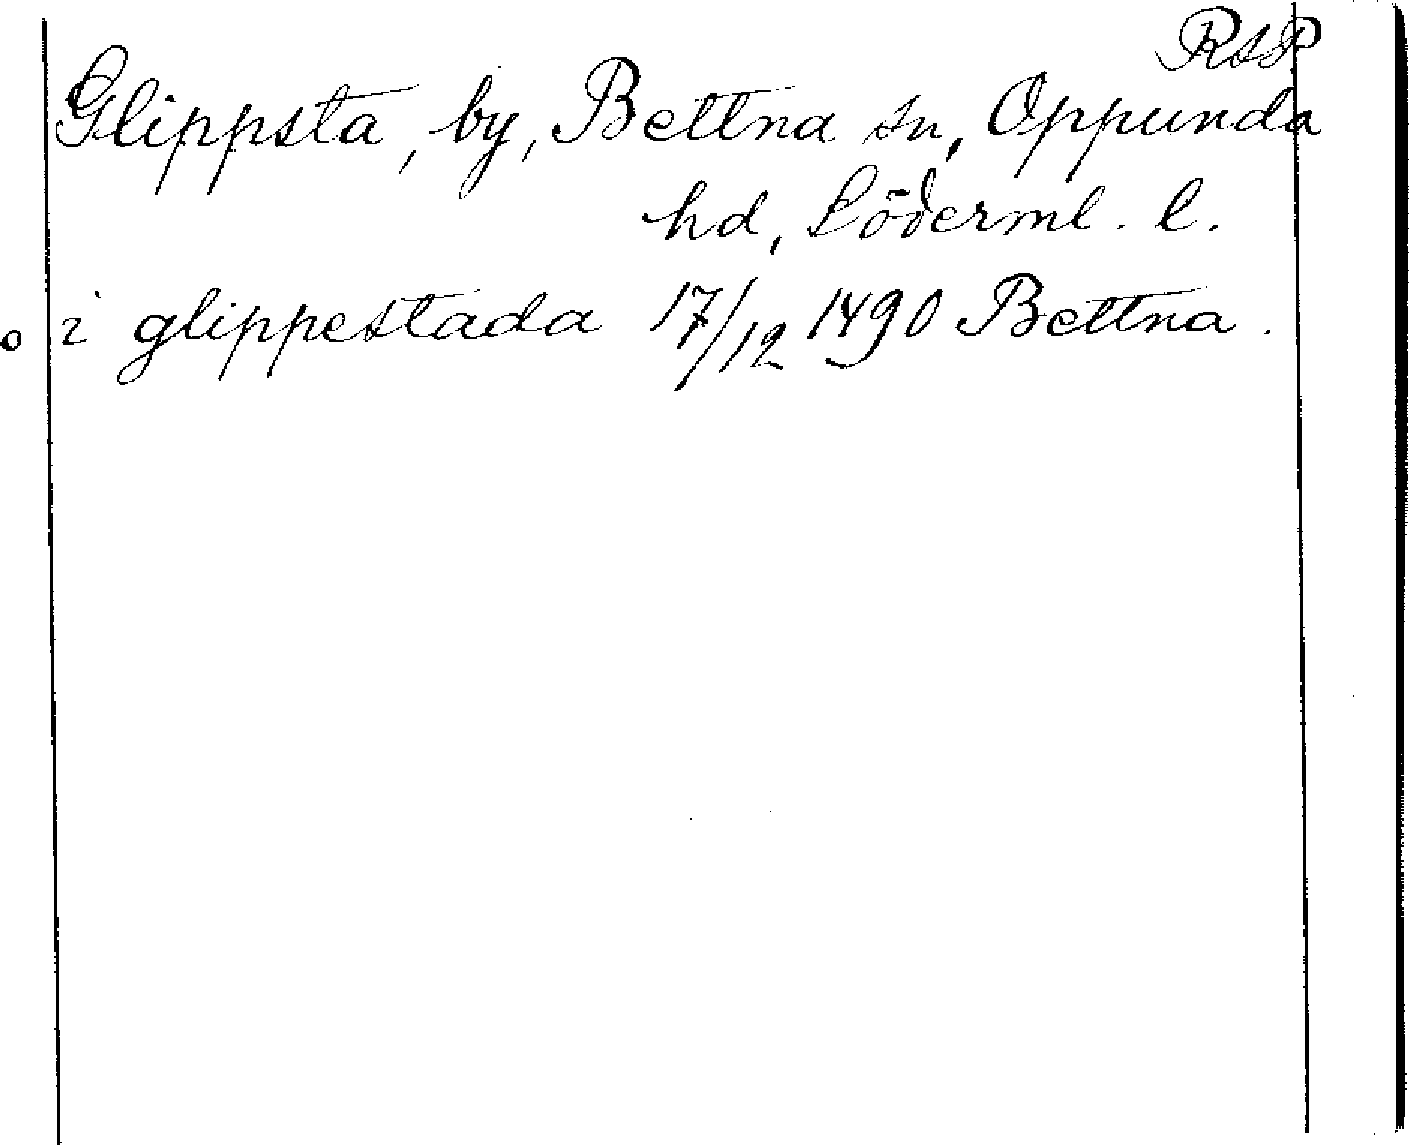 RAP
Glippsta, by, Bettna sn, Oppunda
hd, Söderml. l.
i glippestada 17/12 1490 Bettna.